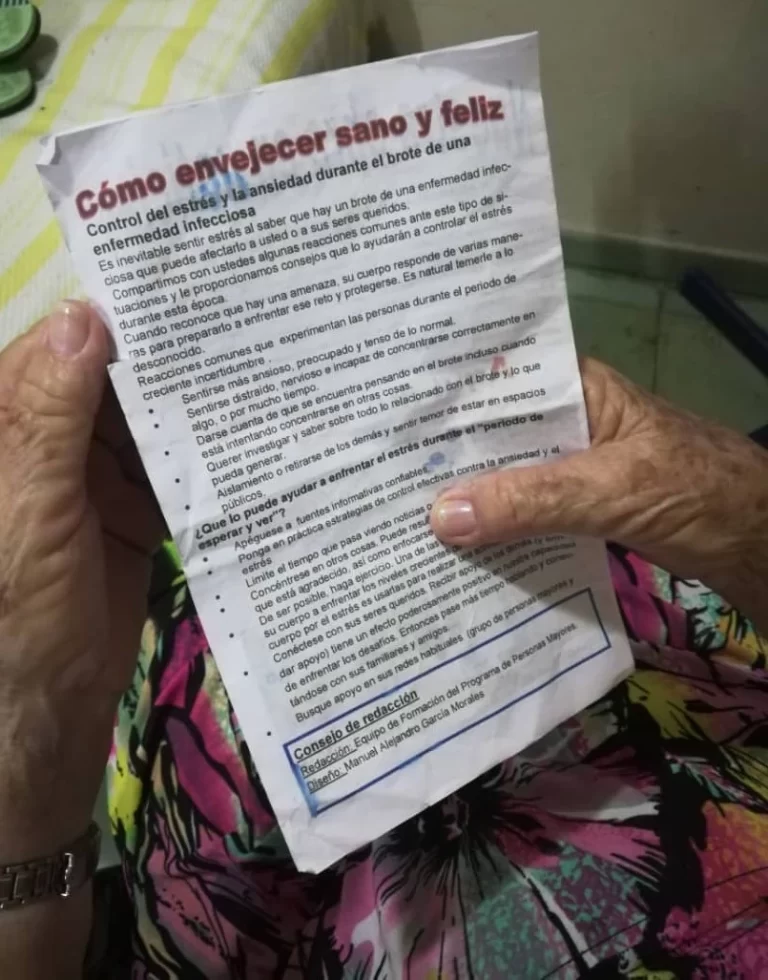 Cómo envejecer sano y feliz
Control del estrés y la ansiedad durante el brote de una
enfermedad infecciosa
Es inevitable sentir estrés al saber que hay un brote de una enfermedad infec-
ciosa que puede afectarlo a usted o a sus seres queridos.
Compartimos con ustedes algunas reacciones comunes ante este tipo de si-
tuaciones y le proporcionamos consejos que lo ayudarán a controlar el estrés
durante esta época.
Cuando reconoce que hay una amenaza, su cuerpo responde de varias mane-
ras para prepararlo a enfrentar ese reto y protegerse. Es natural temerle a lo
desconocido.
Reacciones comunes que experimentan las personas durante el periodo de
creciente incertidumbre .
• Sentirse más ansioso, preocupado y tenso de lo normal.
• Sentirse distraído, nervioso e incapaz de concentrarse correctamente en
algo, o por mucho tiempo.
• Darse cuenta de que se encuentra pensando en el brote incluso cuando
está intentando concentrarse en otras cosas.
• Querer investigar y saber sobre todo lo relacionado con el brote y lo que
pueda generar.
• Aislamiento o retirarse de los demás y sentir temor de estar en espacios
públicos.
¿Que lo puede ayudar a enfrentar el estrés durante el "periodo de
esperar y ver"?
• Apéguese a fuentes informativas confiables.
• Ponga en práctica estrategias de control efectivas contra la ansiedad y el
estrés
• Limite el tiempo que pasa viendo noticias
• Concéntrese en otras cosas. Puede
que está agradecido, así como enfocarse
• De ser posible, haga ejercicio. Una de las
su cuerpo a enfrentar los niveles crecientes
cuerpo por el estrés es usarlas para realizar una
• Conéctese con sus seres queridos. Recibir apoyo de los demás (y
dar apoyo) tiene un efecto poderosamente positivo en nuestra capacidad
de enfrentar los desafíos. Entonces pase más tiempo hablando y conec-
tándose con sus familiares y amigos.
• Busque apoyo en sus redes habituales (grupo de personas mayores y
Consejo de redacción
Redacción: Equipo de Formación del Programa de Personas Mayores.
Diseño: Manuel Alejandro García Morales